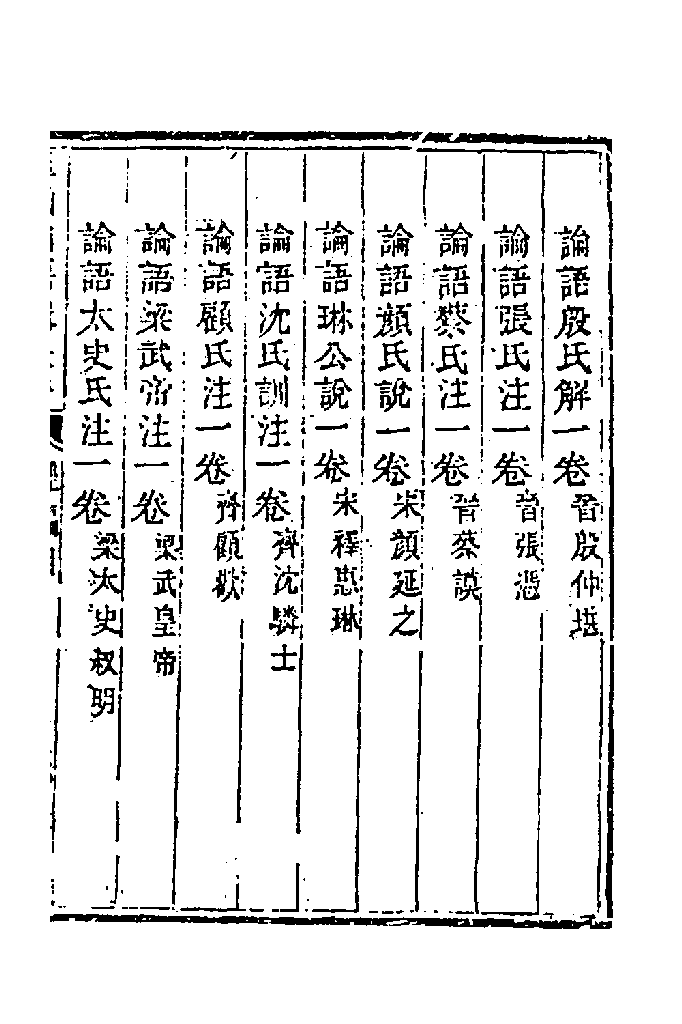 論語殷氏解一卷晉殷仲堪
論語張氏注一卷晉張憑
論語蔡氏注一卷晉蔡謨
論語顏氏說一卷宋顏延之
論語琳公說一卷宋釋惠琳
論語沈氏訓注一卷齊沈驎士
論語顧氏注一卷齊顧歡
論語梁武帝注一卷梁武皇帝
論語太史氏注一卷梁太史叔明